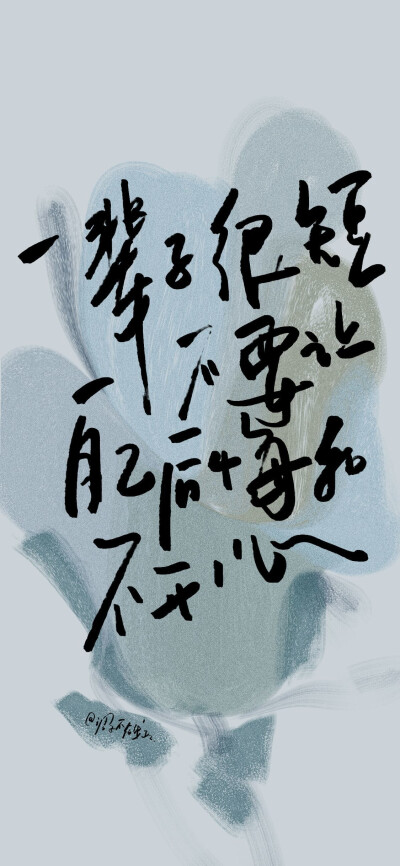 一辈子很短
不要让
自己的每
不开心